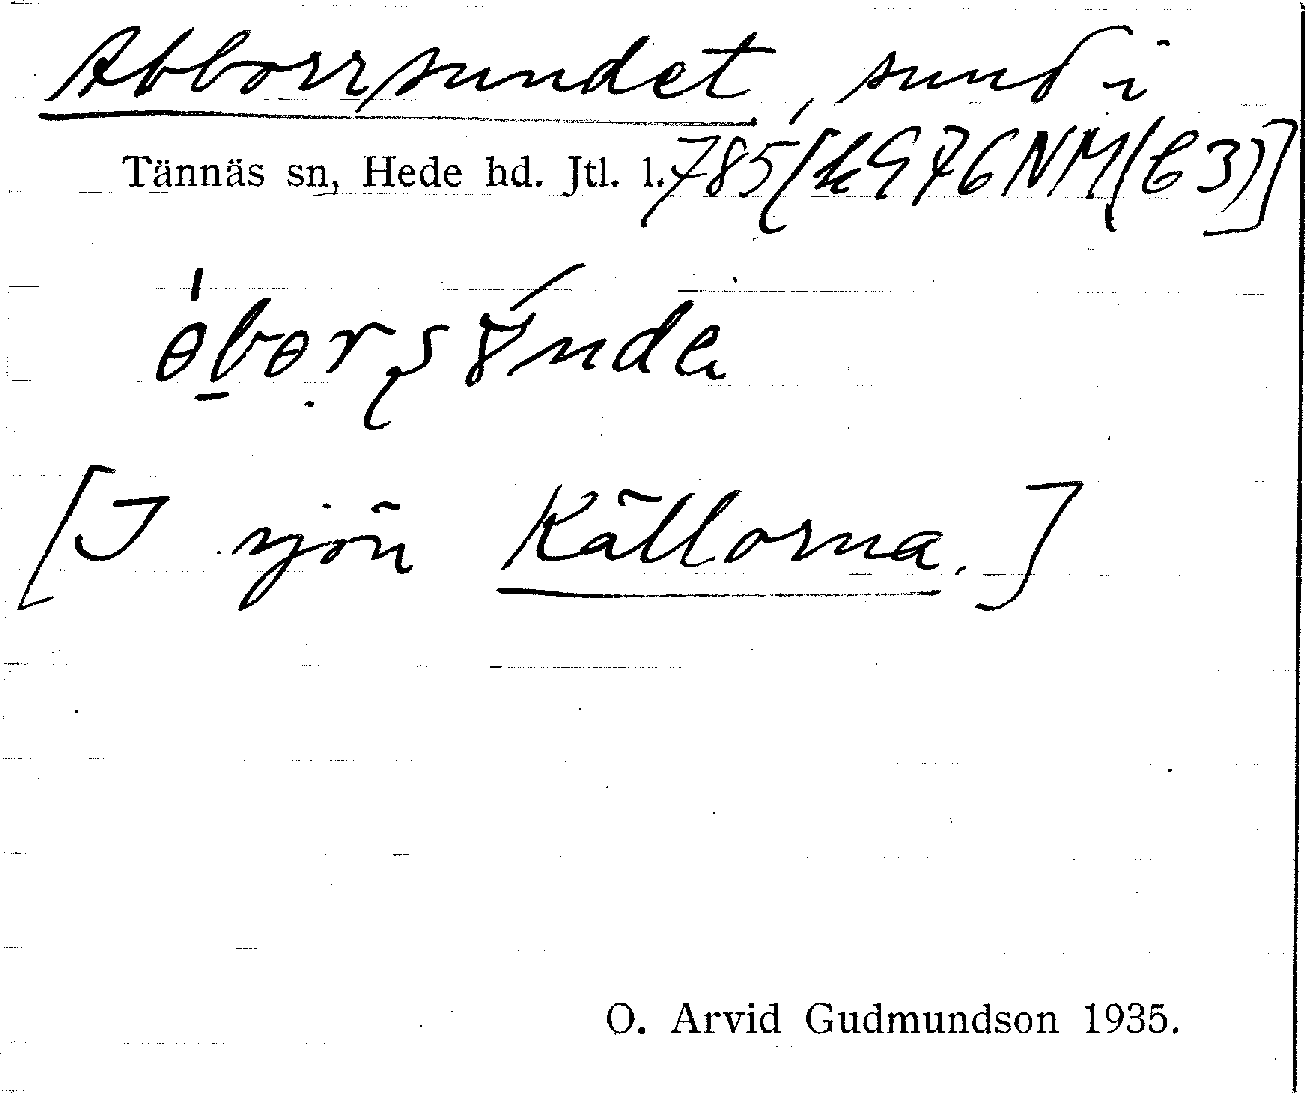 Abborrsundet, sund i
Tännäs sn, Hede hd. Jtl. l. 785 [k976NM(C3)]
[I sjön Källorna.]
O. Arvid Gudmundson 1935.